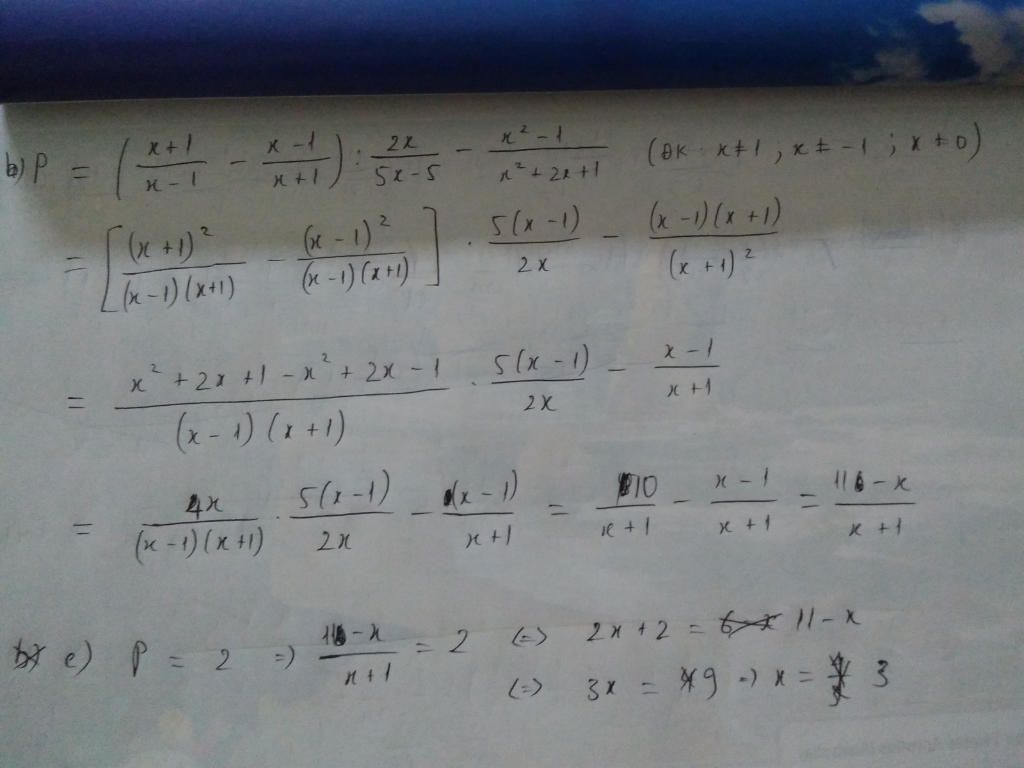 b) P = ( (x+1)/(x-1) - (x-1)/(x+1) ) : 2x/(5x-5) - (x²-1)/(x²+2x+1) (ĐK: x≠1, x≠-1; x≠0)
= [ (x+1)²/((x-1)(x+1)) - (x-1)²/((x-1)(x+1)) ] . 5(x-1)/2x - (x-1)(x+1)/(x+1)²
= (x²+2x+1-x²+2x-1)/((x-1)(x+1)) . 5(x-1)/2x - (x-1)/(x+1)
= 4x/((x-1)(x+1)) . 5(x-1)/2x - (x-1)/(x+1) = 10/(x+1) - (x-1)/(x+1) = (11-x)/(x+1)
c) P = 2 => (11-x)/(x+1) = 2 <=> 2x+2 = 11-x
<=> 3x = 9 => x = 3